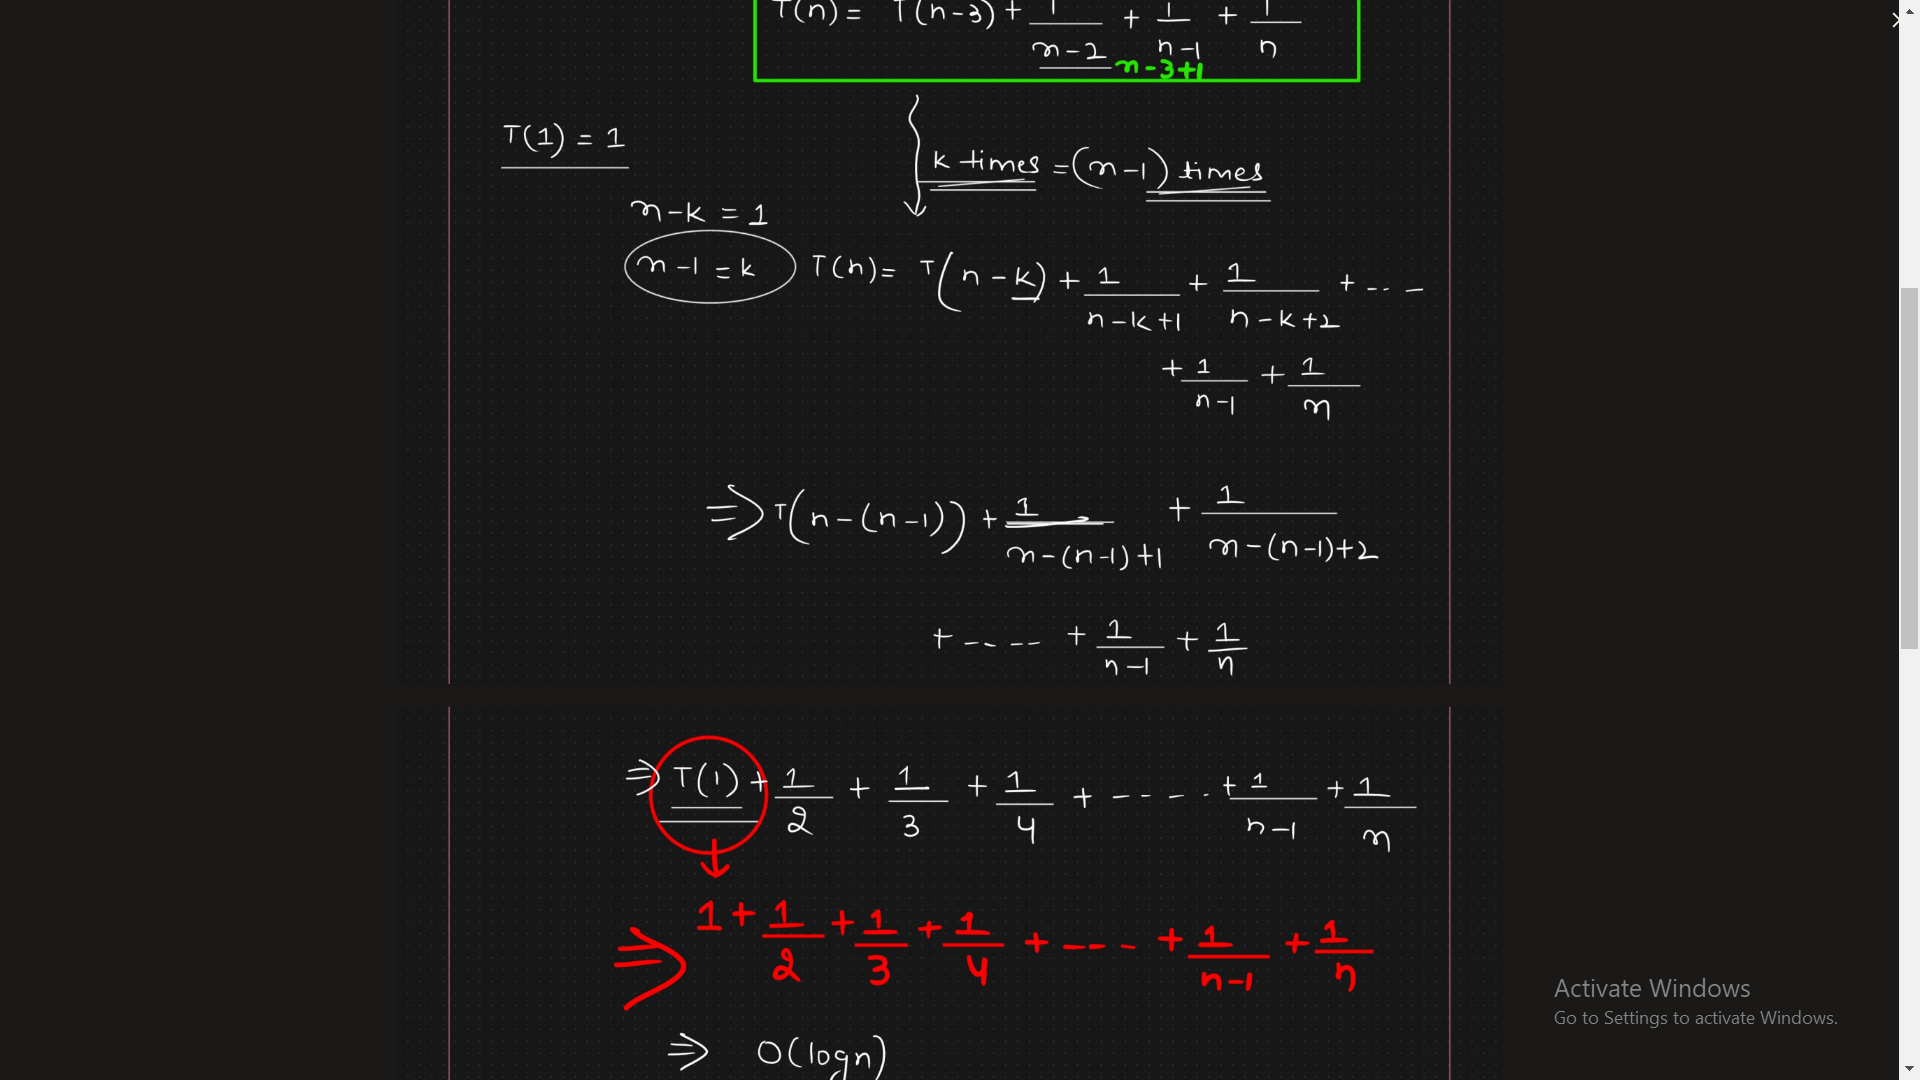 T(n) = T(n-3) + 1/(n-2) + 1/(n-1) + 1/n
n-3+1
T(1) = 1
k times = (n-1) times
n-k = 1
n-1 = k
T(n) = T(n-k) + 1/(n-k+1) + 1/(n-k+2) + ---
+ 1/(n-1) + 1/n
⇒ T(n-(n-1)) + 1/(n-(n-1)+1) + 1/(n-(n-1)+2)
+ ---- + 1/(n-1) + 1/n
⇒ T(1) + 1/2 + 1/3 + 1/4 + ----- + 1/(n-1) + 1/n
⇒ 1 + 1/2 + 1/3 + 1/4 + ---- + 1/(n-1) + 1/n
⇒ O(logn)
Activate Windows
Go to Settings to activate Windows.